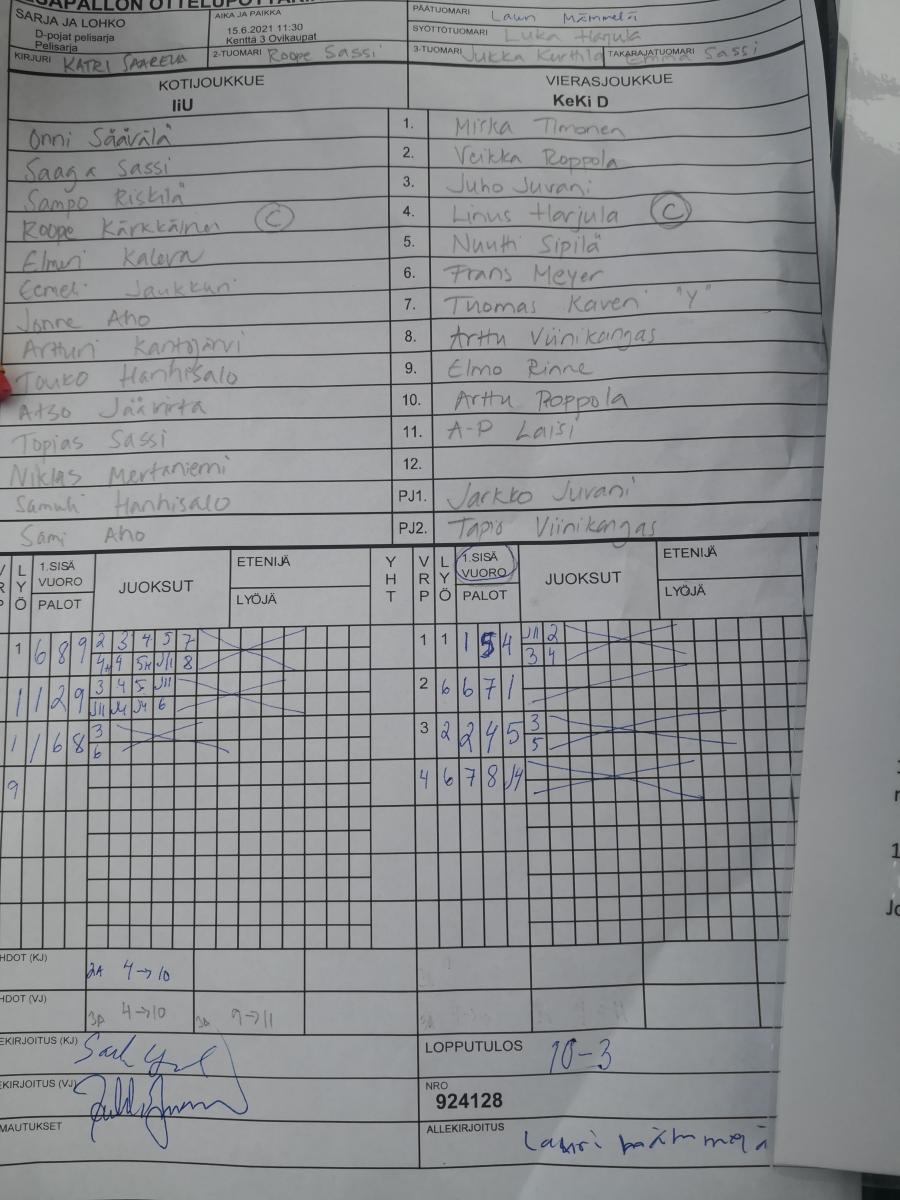 SARJA JA LOHKO
D-pojat pelisarja
Pelisarja
AIKA JA PAIKKA
15.6.2021 11:30
Kenttä 3 Ovikaupat
PÄÄTUOMARI Lauri Mämmelä
SYÖTTÖTUOMARI Luka Harjula
KIRJURI KATRI SAARELA
2-TUOMARI Roope Sassi
3-TUOMARI Jukka Kurthila TAKARAJATUOMARI Emma Sassi
KOTIJOUKKUE
IiU
VIERASJOUKKUE
KeKi D
Onni Säävälä 1. Miska Timonen
Saaga Sassi 2. Veikka Roppola
Sampo Riskilä 3. Juho Juvani
Roope Kärkkäinen C 4. Linus Harjula C
Elmeri Kaleva 5. Nuutti Sipilä
Eemeli Jaukkuri 6. Frans Meyer
Jonne Aho 7. Thomas Kaven "Y"
Artturi Kantojärvi 8. Arttu Viinikangas
Touko Hanhisalo 9. Elmo Rinne
Atso Jäävirta 10. Arttu Roppola
Topias Sassi 11. A-P Laisi
Niklas Mertaniemi 12.
Samuli Hanhisalo PJ1. Jarkko Juvani
Sami Aho PJ2. Tapio Viinikangas
LYÖ 1.SISÄ VUORO PALOT JUOKSUT ETENIJÄ LYÖJÄ YHT VRP LYÖ 1.SISÄ VUORO PALOT JUOKSUT ETENIJÄ LYÖJÄ
1 6 8 9 2 3 4 5 7 1 1 1 5 4 2
8 3 4
1 1 2 9 3 4 5 2 6 6 7 1
6
1 1 6 8 3 3 2 2 4 5 3
6 5
9 4 6 7 8
HDOT (KJ) 2A 4→10
HDOT (VJ) 3A 4→10 9→11
EKIRJOITUS (KJ)
LOPPUTULOS 10-3
EKIRJOITUS (VJ)
NRO
924128
MAUTUKSET
ALLEKIRJOITUS Lauri Mämmelä